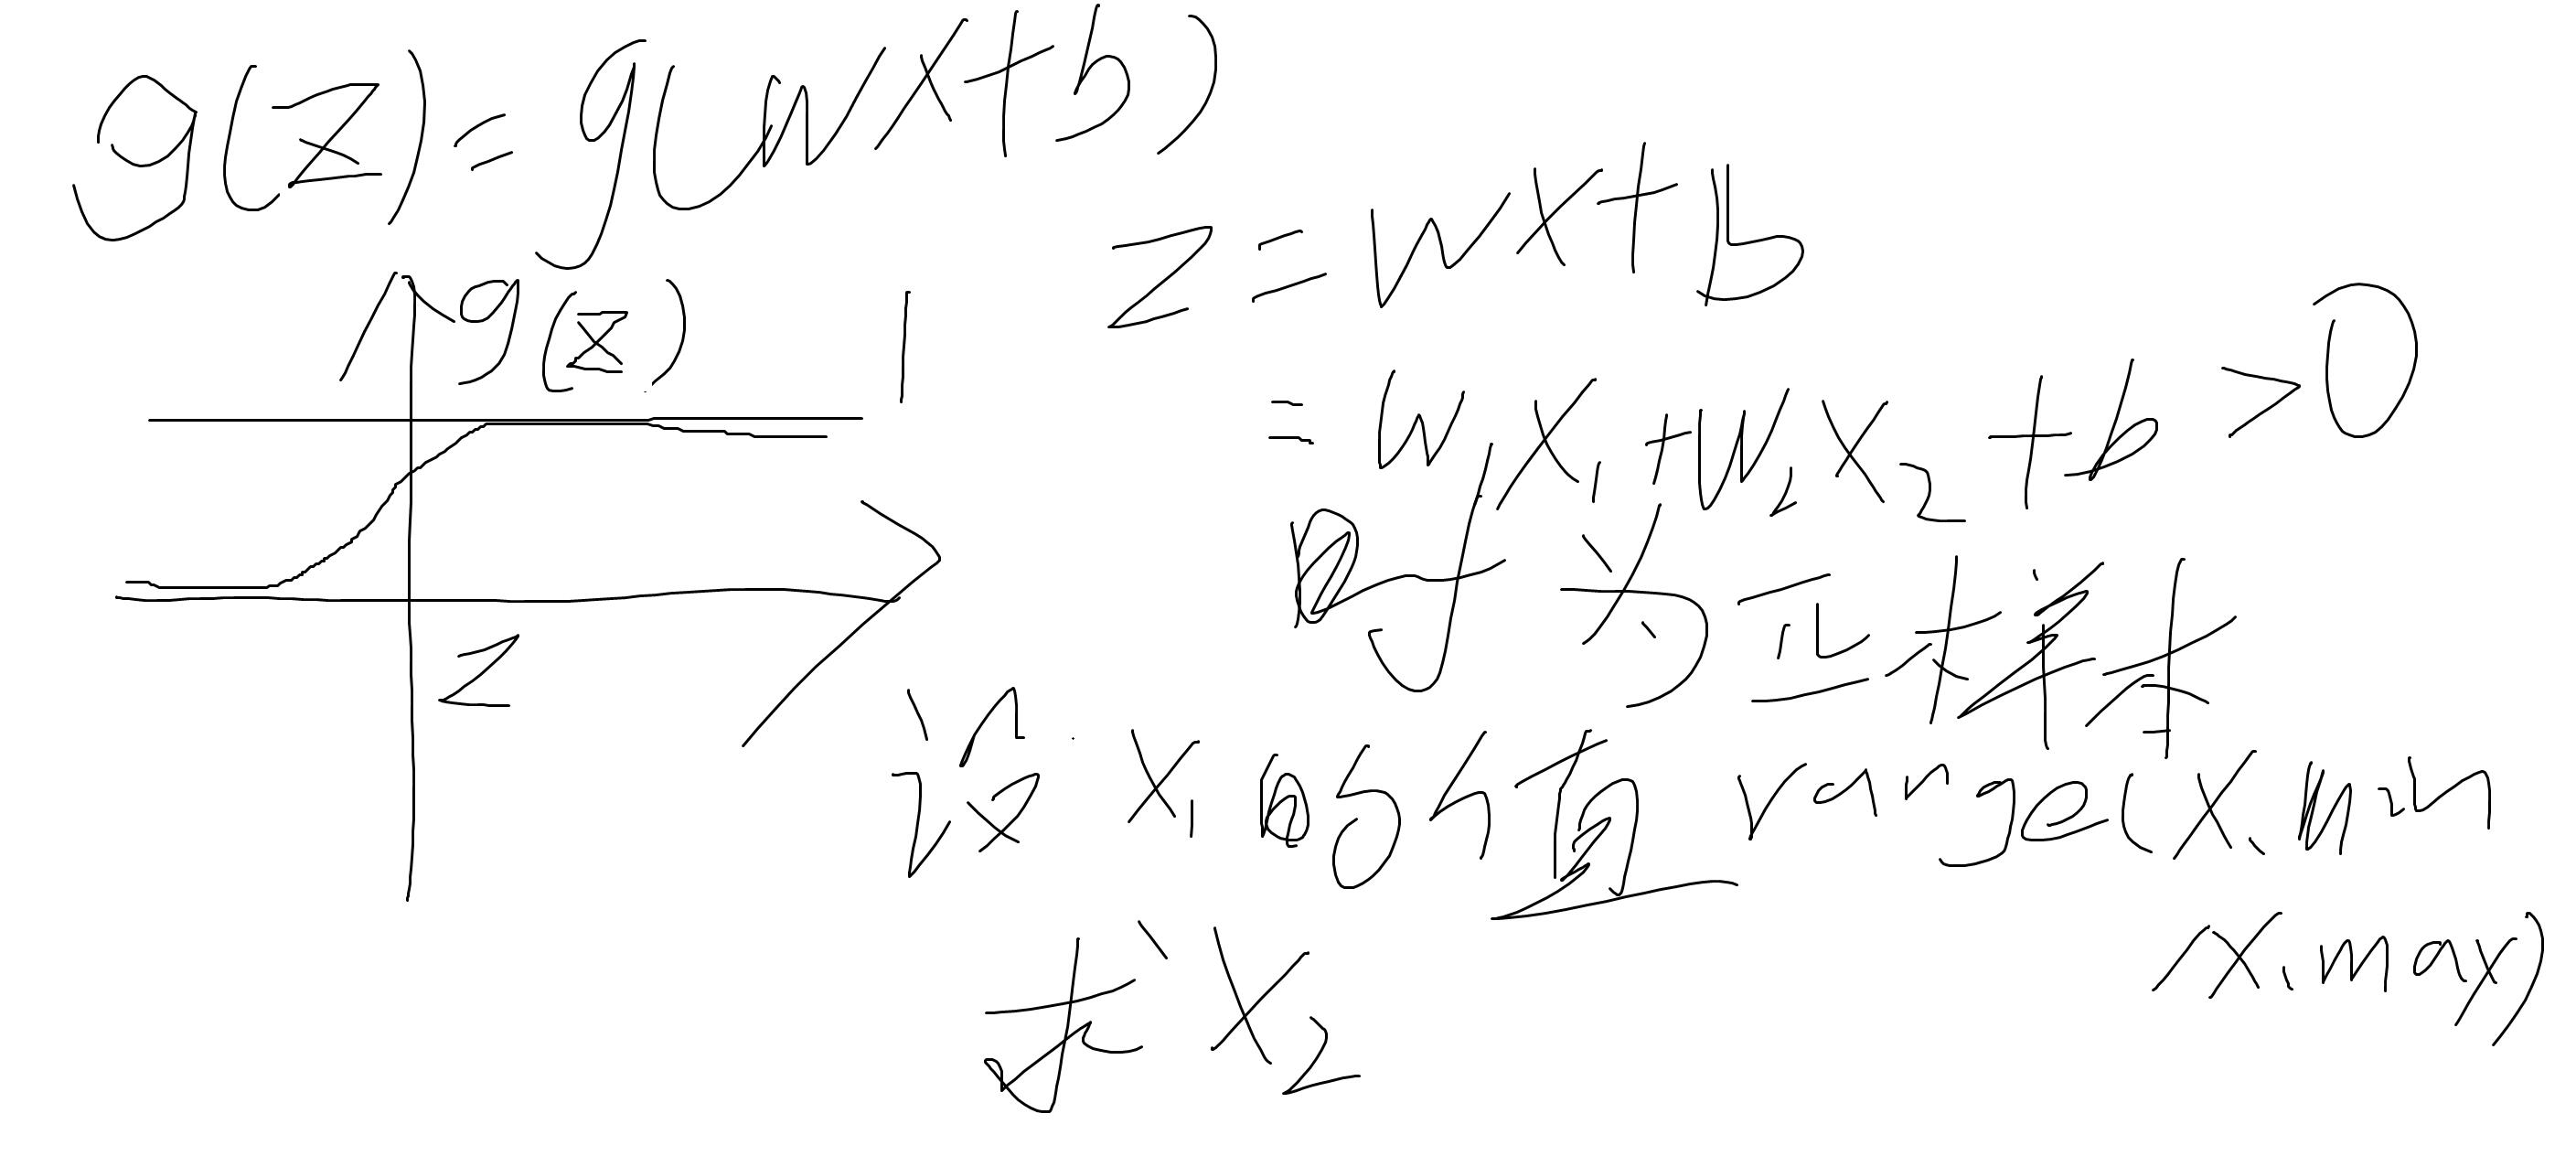 g(z)=g(wx+b)
z=wx+b
g(z) 1
=w₁x₁+w₂x₂+b>0
时为正样本
z
设x₁的值range(x₁min
x₁max)
求x₂